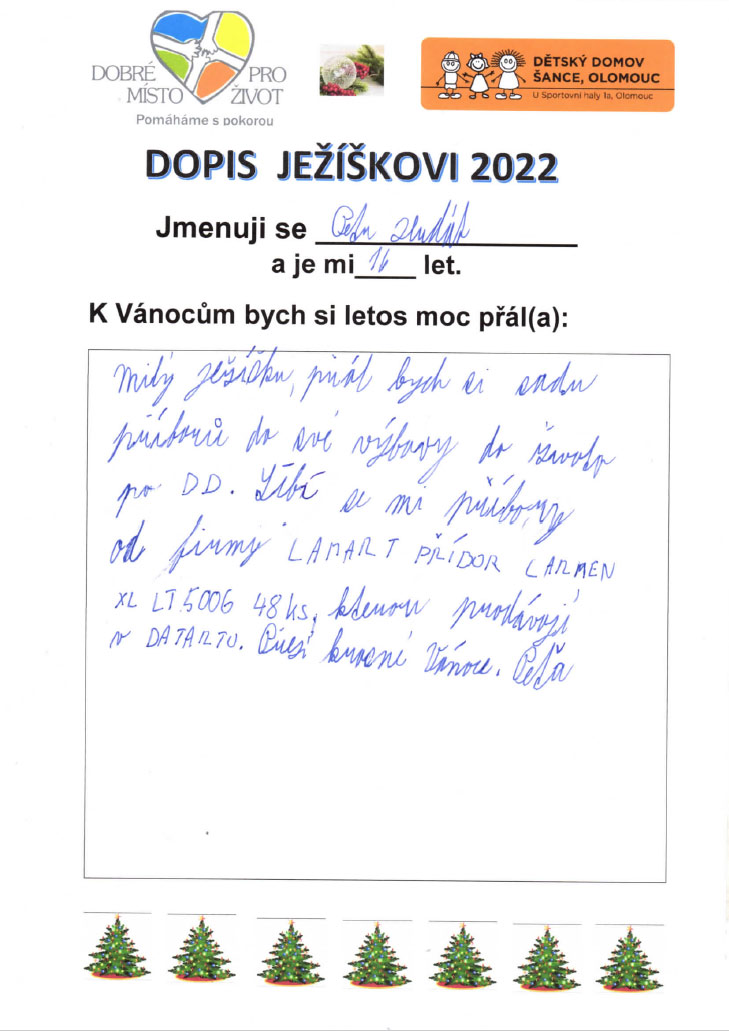 DOBRÉ PRO
MÍSTO ŽIVOT
Pomáháme s pokorou
DĚTSKÝ DOMOV
ŠANCE, OLOMOUC
U Sportovní haly 1a, Olomouc
DOPIS JEŽÍŠKOVI 2022
Jmenuji se Petr
a je mi 16 let.
K Vánocům bych si letos moc přál(a):
Milý Ježíšku, přál bych si sadu
příborů do své výbavy do života
po DD. Líbí se mi příbory
od firmy LAMART PŘÍDOR CARMEN
XL LT5006 48 ks, kterou prodávají
v DATARTU. Přeji krásné Vánoce. Péťa